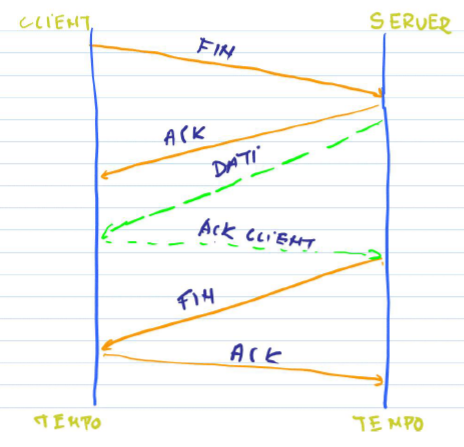 CLIENT
SERVER
FIN
ACK
DATI
ACK CLIENT
FIN
ACK
TEMPO
TEMPO